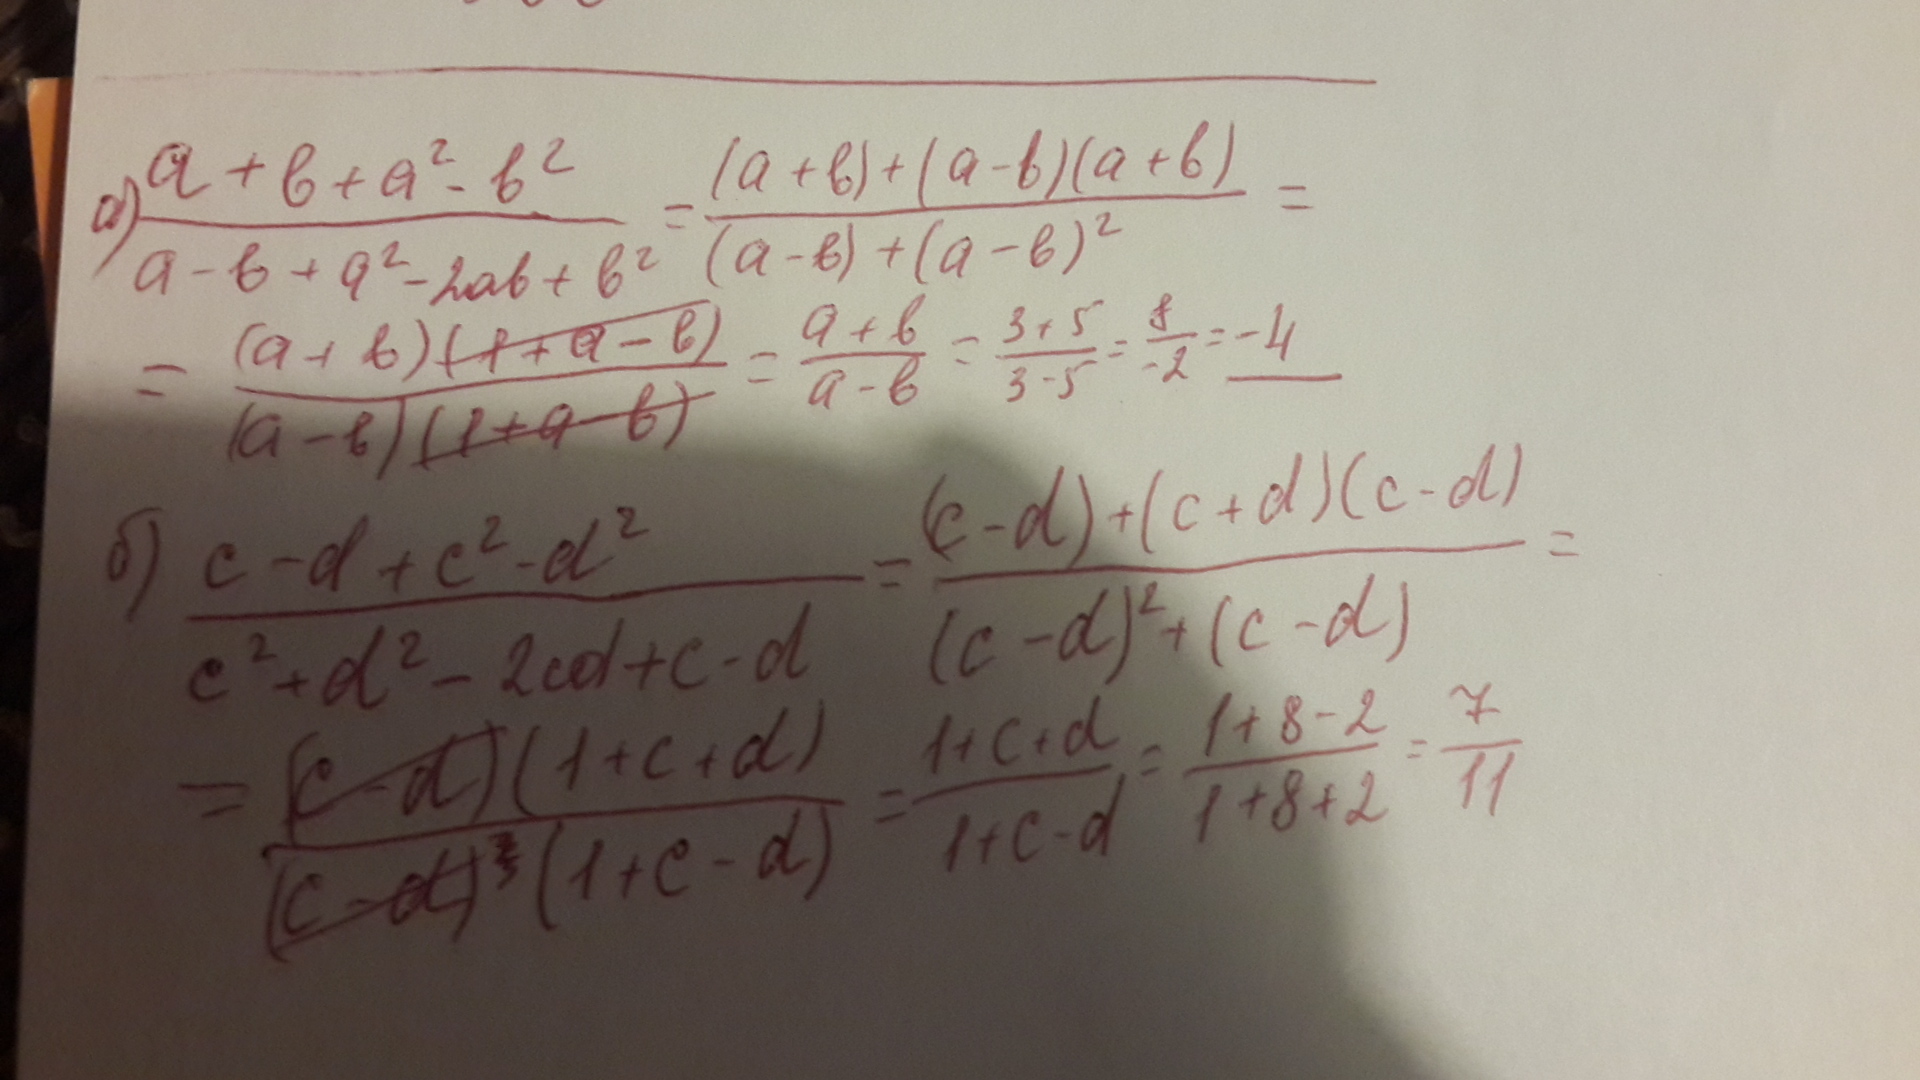 а) (a + b + a² - b²)/(a - b + a² - 2ab + b²) = ((a + b) + (a - b)(a + b))/((a - b) + (a - b)²) =
= ((a + b)(1 + a - b))/((a - b)(1 + a - b)) = (a + b)/(a - b) = (3 + 5)/(3 - 5) = 8/-2 = -4
б) (c - d + c² - d²)/(c² + d² - 2cd + c - d) = ((c - d) + (c + d)(c - d))/((c - d)² + (c - d)) =
= ((c - d)(1 + c + d))/((c - d)(1 + c - d)) = (1 + c + d)/(1 + c - d) = (1 + 8 - 2)/(1 + 8 + 2) = 7/11